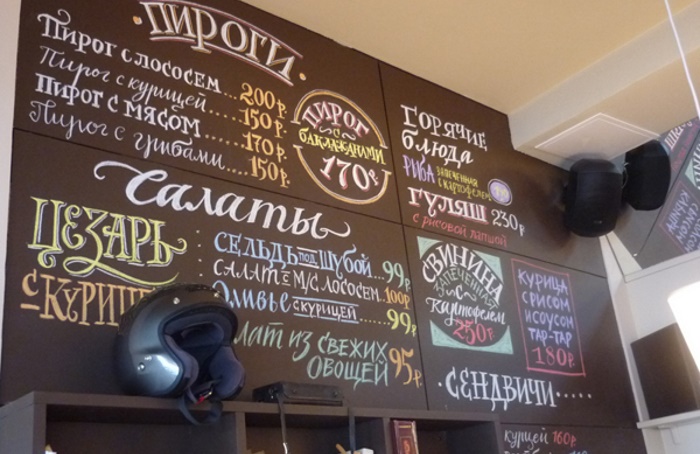 Пироги
Пирог с лососем....200р.
Пирог с курицей....150р.
Пирог с мясом....170р.
Пирог с грибами....150р.
Пирог
с
баклажанами
170р.
Салаты
Цезарь
с курицей
Сельдь под шубой...99р.
Салат с м/с лососем...100р
Оливье с курицей......99р
лат из свежих
овощей 95р.
Горячие
блюда
Рыба запеченная
с картофелем
Гуляш 230р
с рисовой лапшой
Свинина
запеченная
с
картофелем
250р.
Курица
с рисом
и соусом
тар-тар
180р.
Сендвичи.....
курицей 160р.